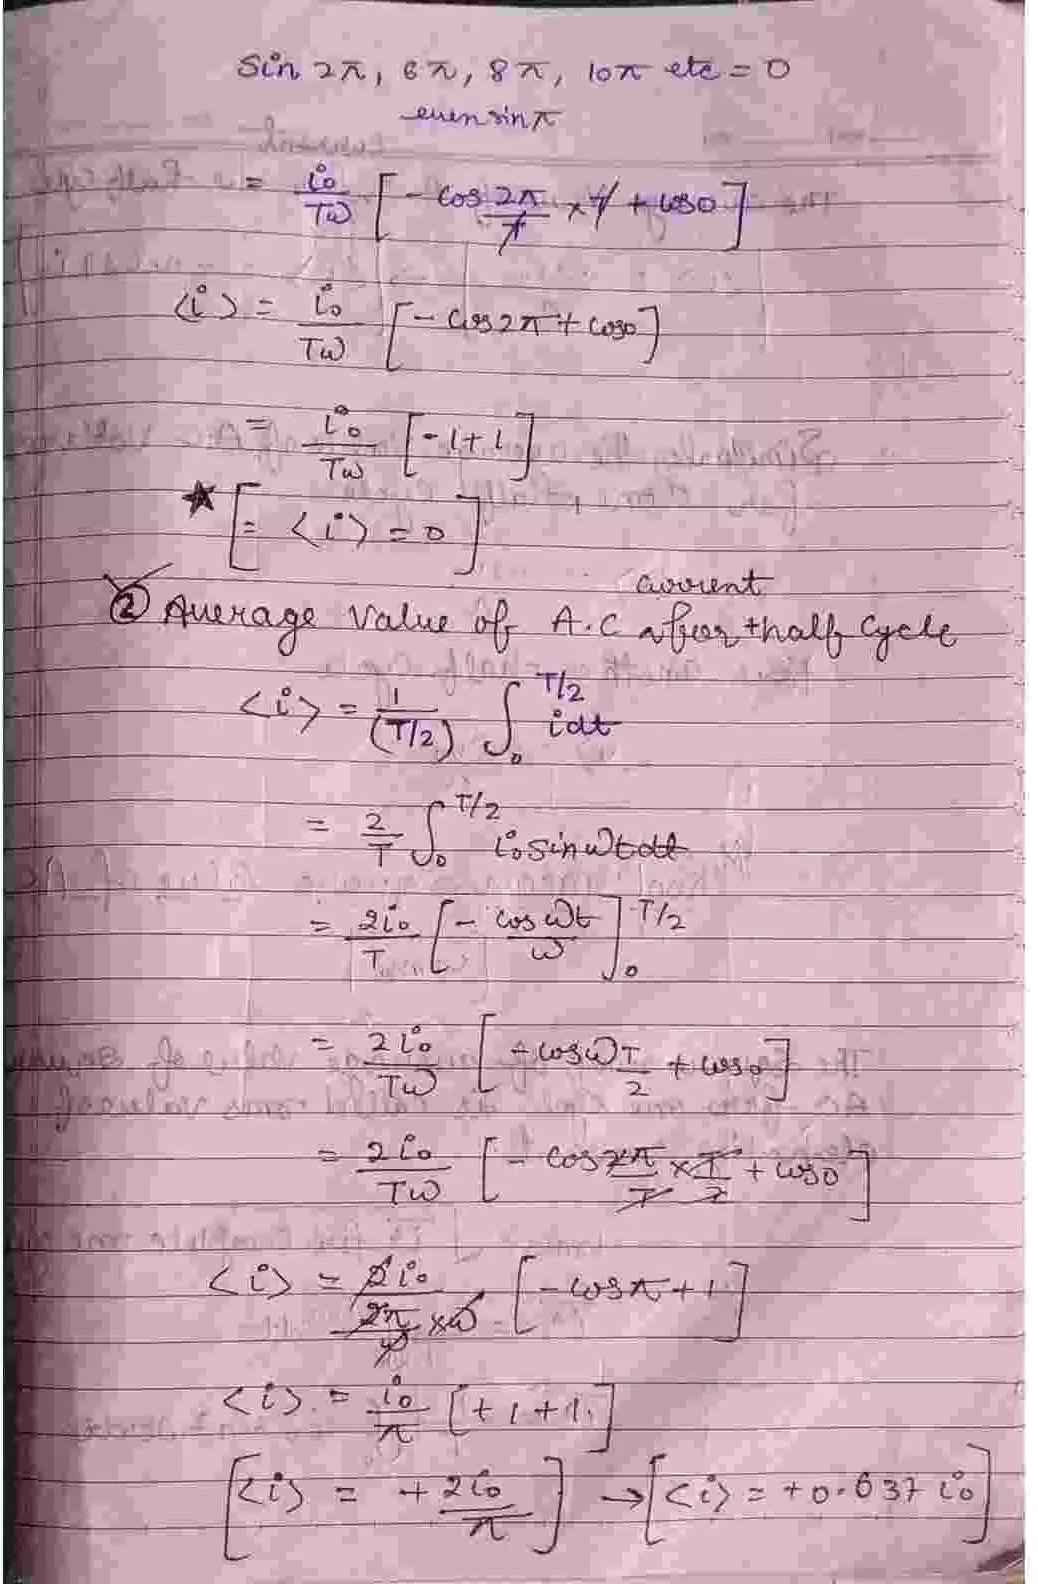 Sin 2π, 6π, 8π, 10π etc = 0
even sin π
= i₀/Tω [- cos 2π/T × T + cos 0]
<i> = i₀/Tω [- cos 2π + cos 0]
= i₀/Tω [-1+1]
★ [= <i> = 0]
current
② Average value of A.C for +half cycle
<i> = 1/(T/2) ∫₀^T/2 idt
= 2/T ∫₀^T/2 i₀ sin ωt dt
= 2i₀/T [- cos ωt/ω]₀^T/2
= 2i₀/Tω [- cos ω T/2 + cos 0]
= 2i₀/Tω [- cos 2π/T × T/2 + cos 0]
<i> = 2i₀/(2π/ω × ω) [- cos π + 1]
<i> = i₀/π [+1+1]
[<i> = + 2i₀/π] → [<i> = +0.637 i₀]